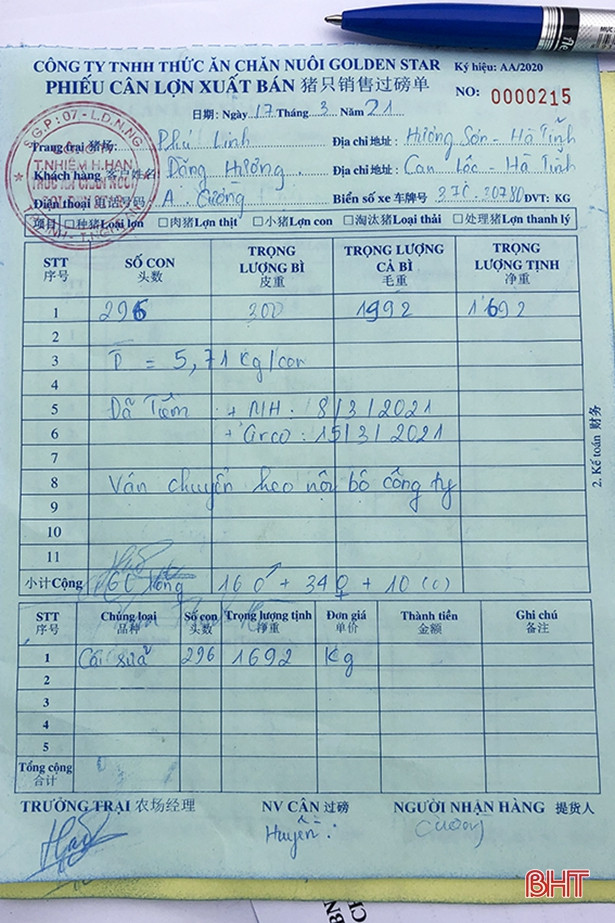 CÔNG TY TNHH THỨC ĂN CHĂN NUÔI GOLDEN STAR Ký hiệu: AA/2020
PHIẾU CÂN LỢN XUẤT BÁN 猪只销售过磅单 NO: 0000215
日期: Ngày 17 Tháng 3 Năm 21
S.G.P: 07 - L.D.N.NG
T.NHIỆM H.HẠN
Trang trại 猪场: Phú Linh Địa chỉ 地址: Hương Sơn - Hà Tĩnh
Khách hàng 客户姓名: Đặng Hương Địa chỉ 地址: Can Lộc - Hà Tĩnh
Điện thoại 电话号码: A Cường Biển số xe 车牌号 37C. 30780 ĐVT: KG
项目 □种猪Loại lợn □肉猪Lợn thịt □小猪Lợn con □淘汰猪Loại thải □处理猪Lợn thanh lý
STT SỐ CON TRỌNG LƯỢNG BÌ TRỌNG LƯỢNG CẢ BÌ TRỌNG LƯỢNG TỊNH
序号 头数 皮重 毛重 净重
1 296 300 1992 1692
2
3 = 5,71 kg/con
4
5 Đã Tiêm + MH: 8/3/2021
6 + Circo: 15/3/2021
7
8 Vận chuyển heo nội bộ công ty
9
10
11
小计Cộng 160♂ + 34♀ + 10 (c)
2. Kế toán 财务
STT Chủng loại Số con Trọng lượng tịnh Đơn giá Thành tiền Ghi chú
序号 品种 头数 净重 单价 金额 备注
1 Cái sữa 296 1692 Kg
2
3
4
5
Tổng cộng
合计
TRƯỞNG TRẠI 农场经理 NV CÂN 过磅 NGƯỜI NHẬN HÀNG 提货人
Huyền Cường
BHT